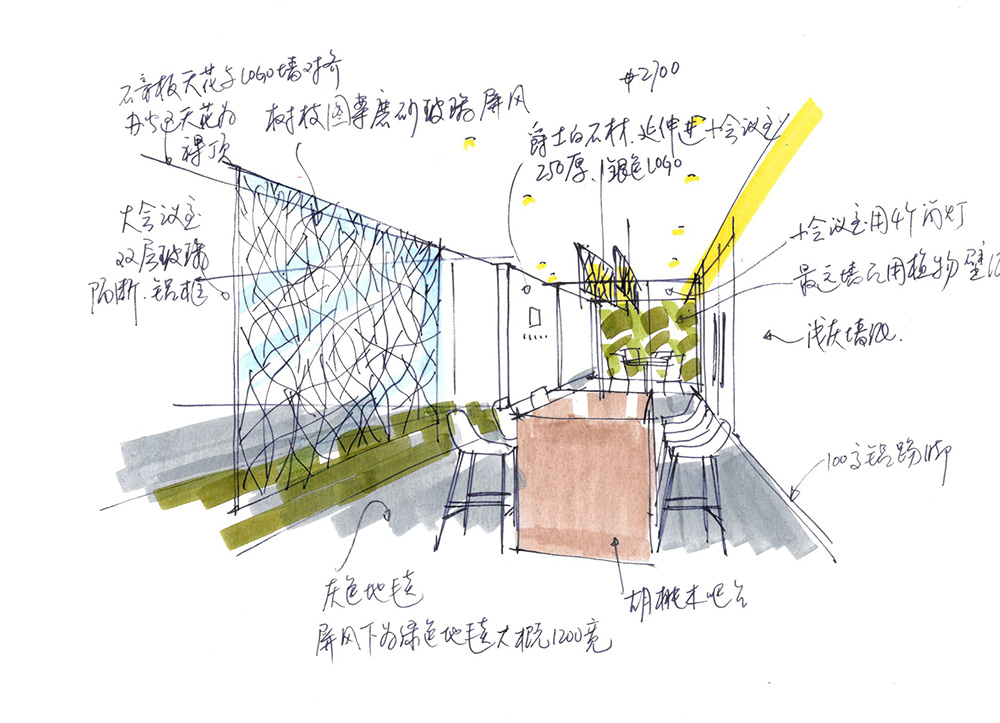 石膏板天花与LOGO墙对齐
办公区天花为
裸顶
树枝图案磨砂玻璃屏风
#2700
爵士白石材.延伸进小会议室
250厚、银色LOGO
大会议室
双层玻璃
隔断.铝框
小会议室用4个筒灯
最远墙面用植物壁
浅灰墙
100高铝踢脚
灰色地毯
屏风下为绿色地毯大概1200宽
胡桃木吧台